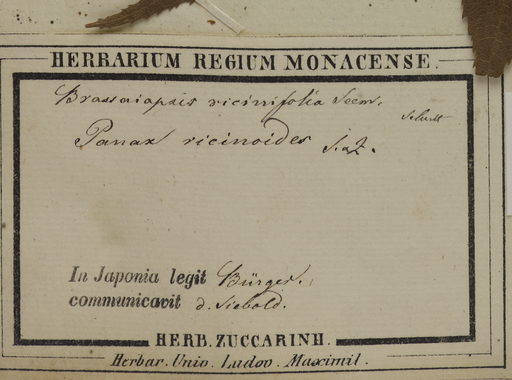 HERBARIUM REGIUM MONACENSE.
Brassaiopsis ricinifolia Seem.
Panax ricinoides S. a Z.
In Japonia legit Bürger.
communicavit d. Siebold.
HERB. ZUCCARINII.
Herbar. Univ. Ludov. Maximil.